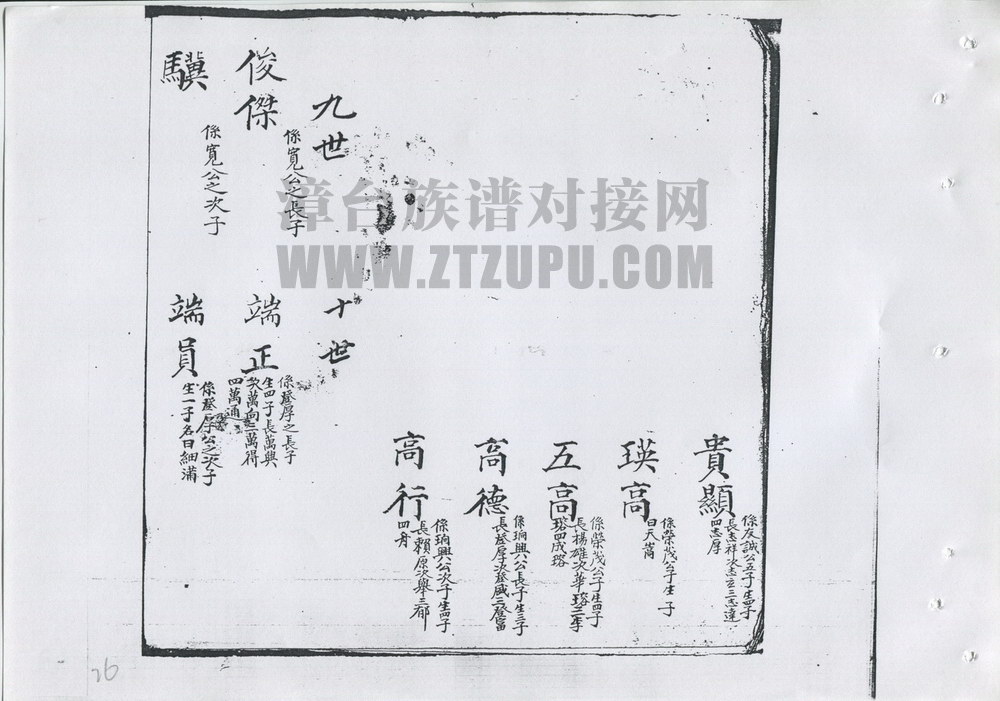 貴顯
係友誠公五子生四子
長志祥次志立三志達
四志厚
瑛高
係榮茂公子生 子
曰天嵩
五高
係榮茂公子生四子
長楊雄次華
四成珞
高德
係珦興公長子生三子
長登厚次登盛三登富
高行
係珦興公次子生四子
長賴原次舉三郁
四舟
九世
俊傑
係寬公之長子
驥
係寬公之次子
十世
端正
係登厚之長子
生四子長萬興
次萬向三萬得
四萬通
端員
係登厚公之次子
生一子名曰細滿
漳台族谱对接网
WWW.ZTZUPU.COM
26